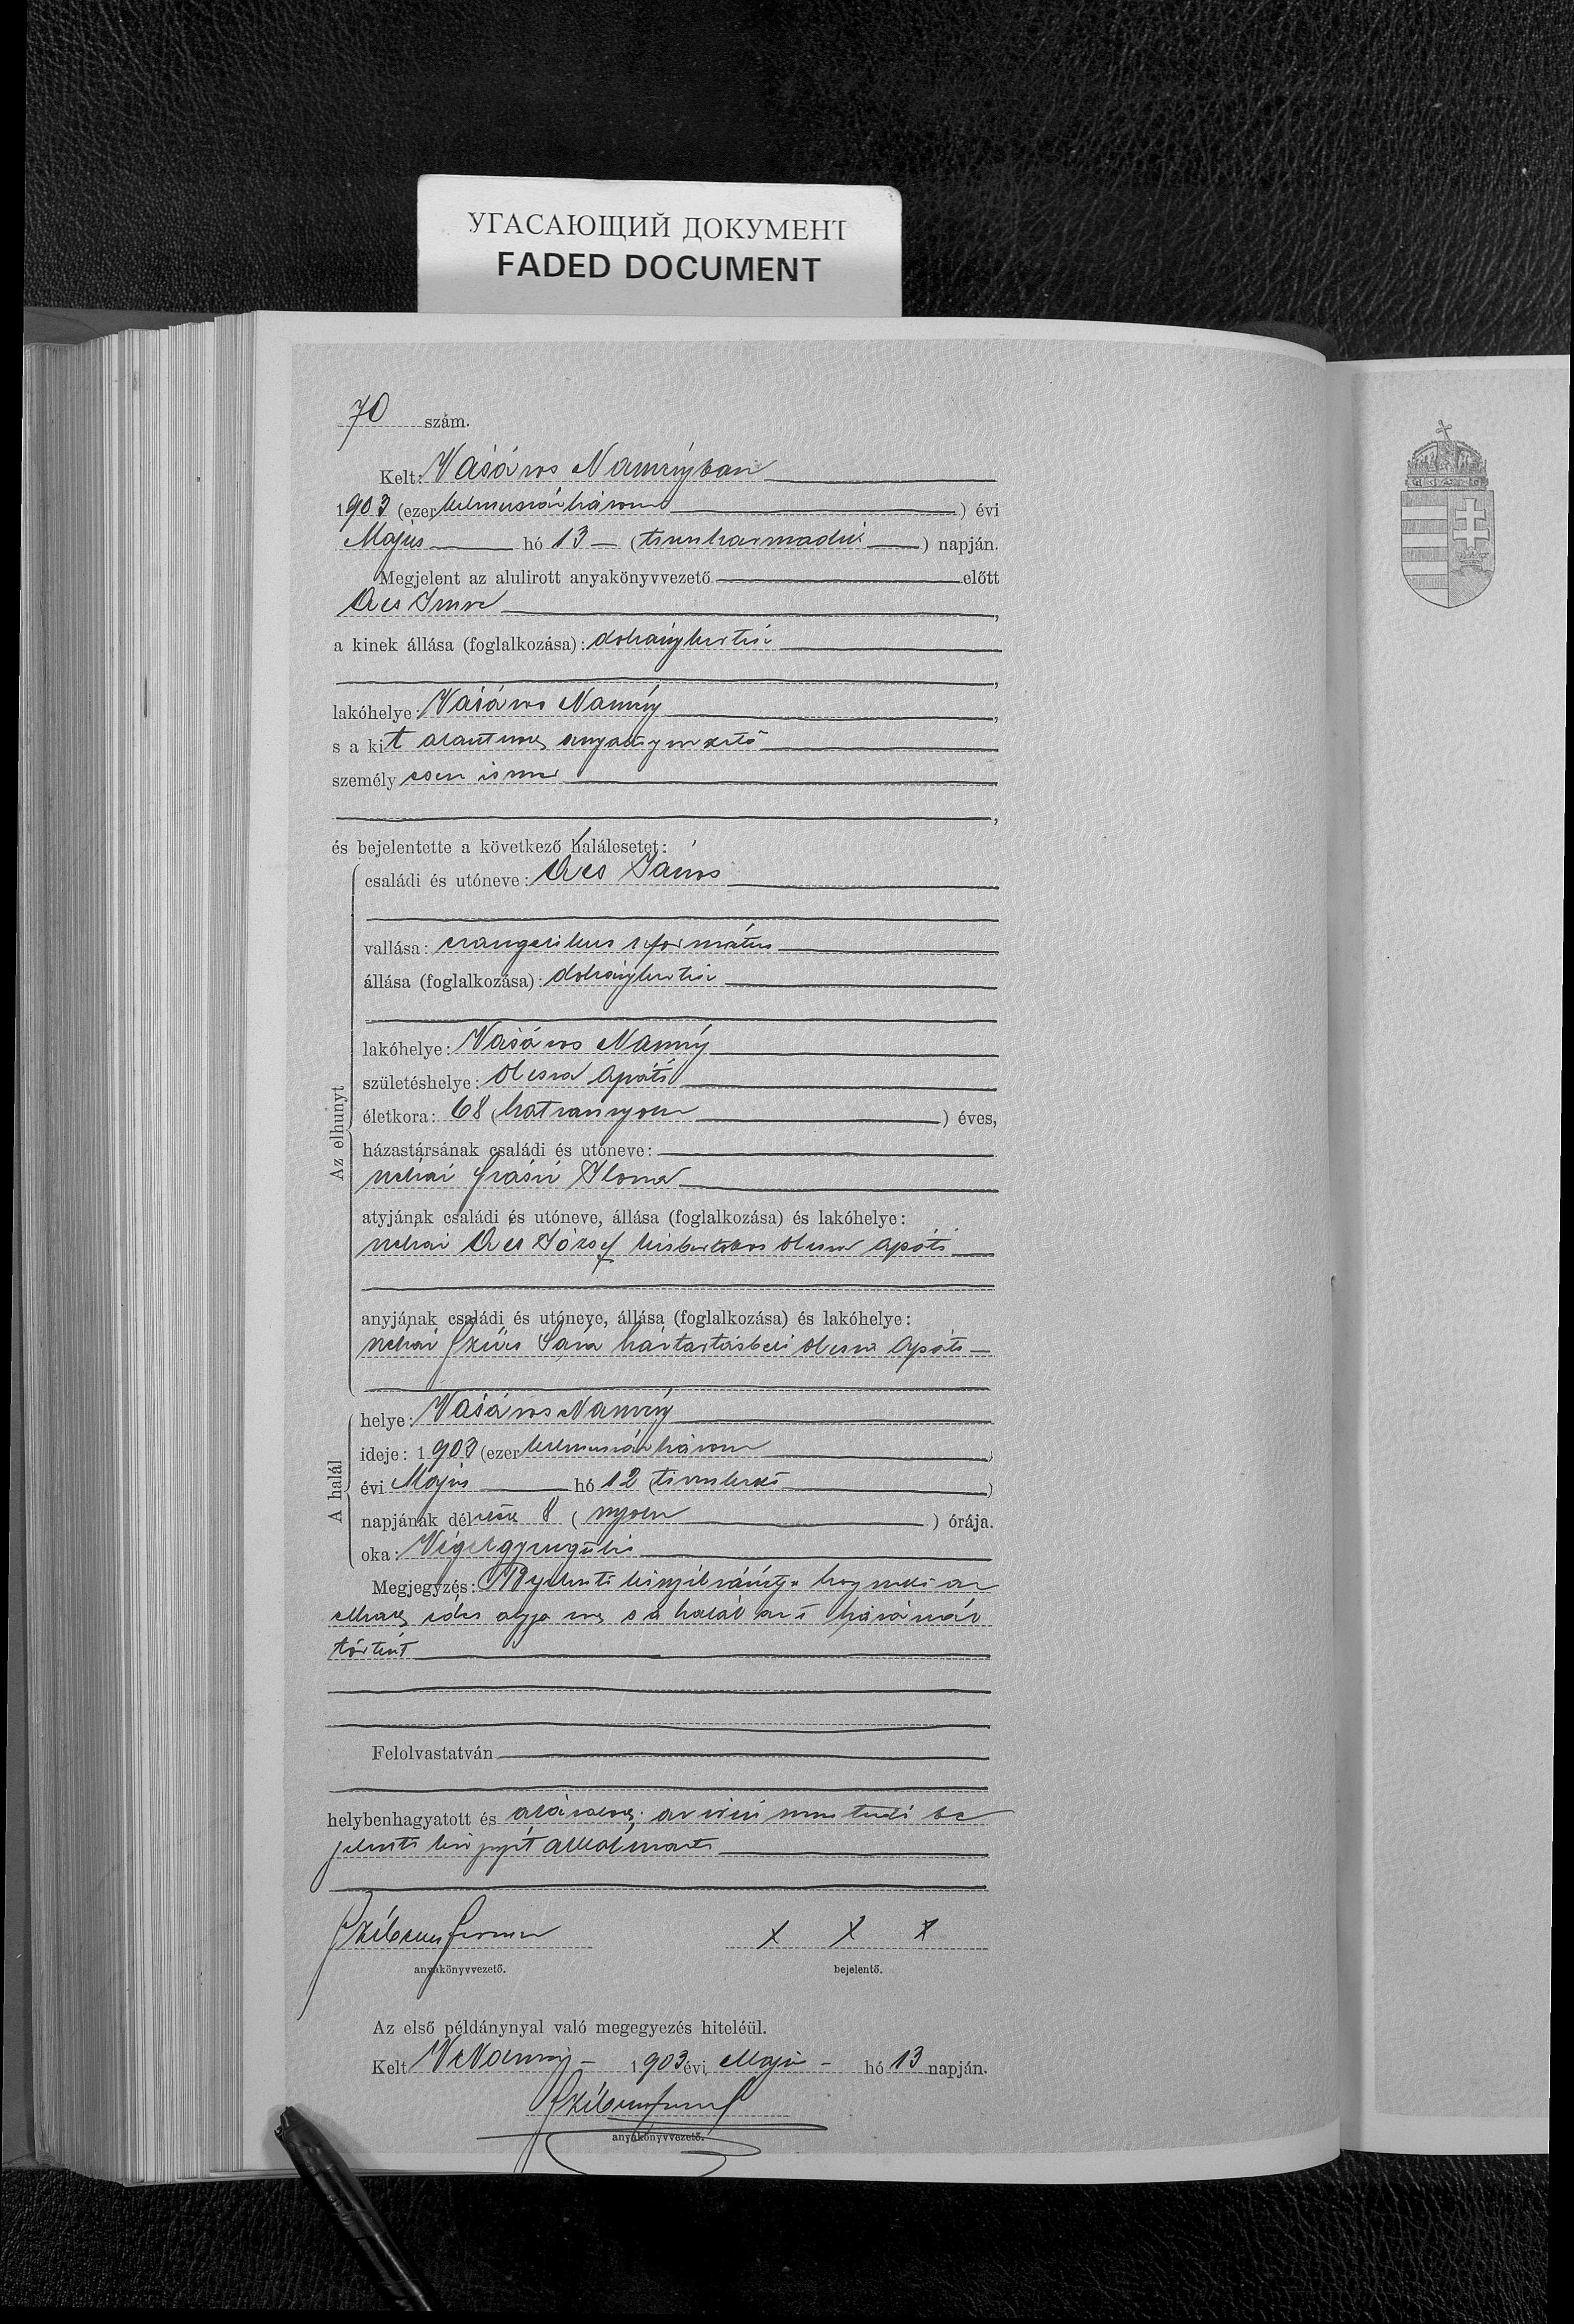 УГАСАЮЩИЙ ДОКУМЕНТ
FADED DOCUMENT
70 szám.
Kelt: Vásáros Naményban
1903 (ezerkilenczszázhárom) évi
Május hó 13 (tizenharmadik) napján.
Megjelent az alulirott anyakönyvvezető előtt
Ács Imre,
a kinek állása (foglalkozása): dohánykertész
,
lakóhelye: Vásáros Namény,
s a kit anyakönyvvezető
személyesen ismer
,
és bejelentette a következő halálesetet:
Az elhunyt
családi és utóneve: Ács János
vallása: evangelikus református
állása (foglalkozása): dohánykertész
lakóhelye: Vásáros Namény
születéshelye: Olcsva Apáti
életkora: 68 (hatvannyolcz) éves,
házastársának családi és utóneve:
néhai Ilona
atyjának családi és utóneve, állása (foglalkozása) és lakóhelye:
néhai Ács József kisbirtokos Olcsva Apáti
anyjának családi és utóneve, állása (foglalkozása) és lakóhelye:
néhai Szűcs Sára háztartásbeli Olcsva Apáti
A halál
helye: Vásáros Namény
ideje: 1903 (ezerkilenczszázhárom)
évi Május hó 12 (tizenkettő)
napjának délelőtt 8 (nyolcz) órája.
oka: Végelgyengülés
Megjegyzés: Bejelentő kinyilvánítja hogy neki az
elhalt édes atyja volt s a halál az ő házánál
történt
Felolvastatván
helybenhagyatott és aláíratott; az írni nem tudó be
jelentő kézjegyét alkalmazta
anyakönyvvezető.
x x x
bejelentő.
Az első példánynyal való megegyezés hiteléül.
Kelt VNamény 1903 évi Május hó 13 napján.
anyakönyvvezető.